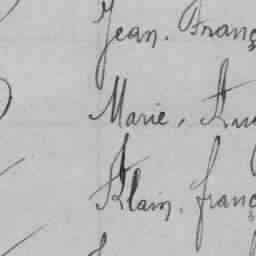 Jean. Franç
Marie, An
Alain. franç